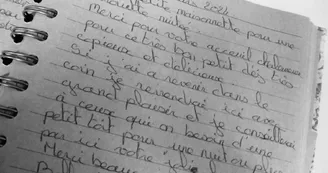 2024
petite maisonnette pour une
nuitée
Merci pour votre acceuil chaleureux
pour ce très bon petit dej très
copieux et delicieux.
Si j'ai a revenir dans le
coin je reviendrai ici avec
grand plaisir et je conseillerai
à ceux qui on besoin d'une
petit toit pour une nuit ou plus
par ici votre
Merci beaucoup